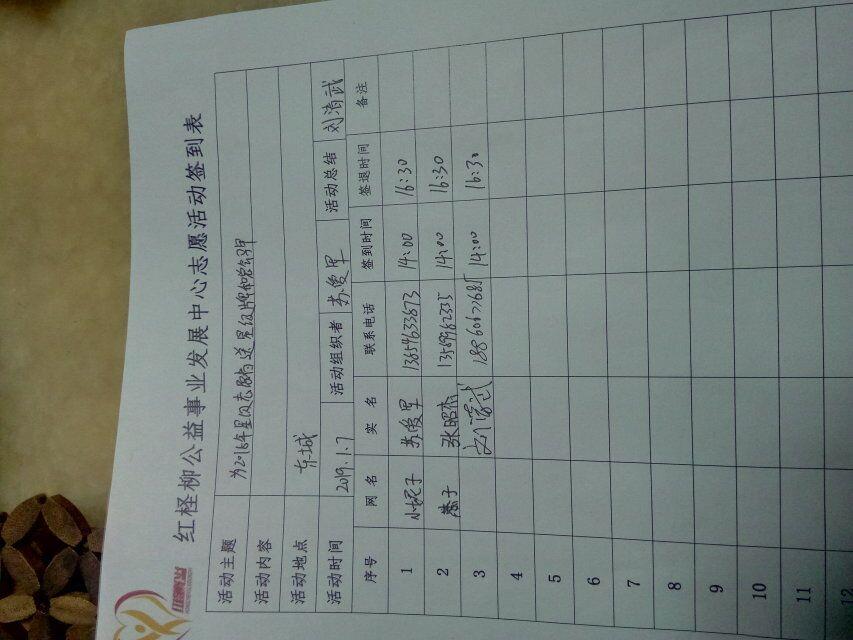 红柽柳公益事业发展中心志愿活动签到表
活动主题 为2018年星级志愿者送星级牌和
活动内容
活动地点 东城
活动时间 2019.1.7 活动组织者 苏爱军 活动总结 刘清武
序号 网名 实名 联系电话 签到时间 签退时间 备注
1 苏爱军 13654633673 14:00 16:30
2 燕子 张昭杰 14:00 16:30
3 14:00 16:30
4
5
6
7
8
9
10
11
12